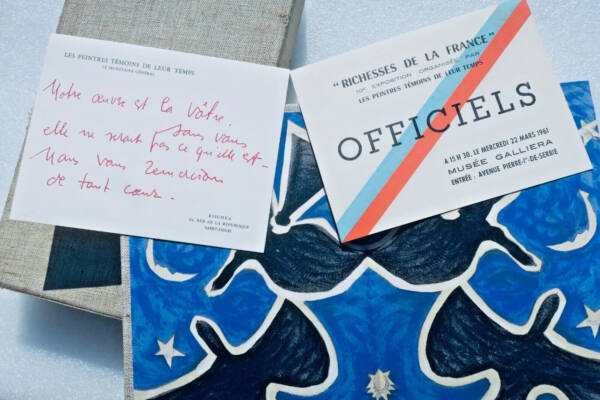 LES PEINTRES TÉMOINS DE LEUR TEMPS
LE SECRÉTAIRE GÉNÉRAL
Notre œuvre est la vôtre.
Sans vous
elle ne serait pas ce qu'elle est -
Nous vous remercions
de tout cœur.
RUE DE LA RÉPUBLIQUE
" RICHESSES DE LA FRANCE "
10e EXPOSITION ORGANISÉE PAR
LES PEINTRES TÉMOINS DE LEUR TEMPS
OFFICIELS
A 15 H 30, LE MERCREDI 22 MARS 1961
MUSÉE GALLIERA
ENTRÉE : AVENUE PIERRE-Ier-DE-SERBIE